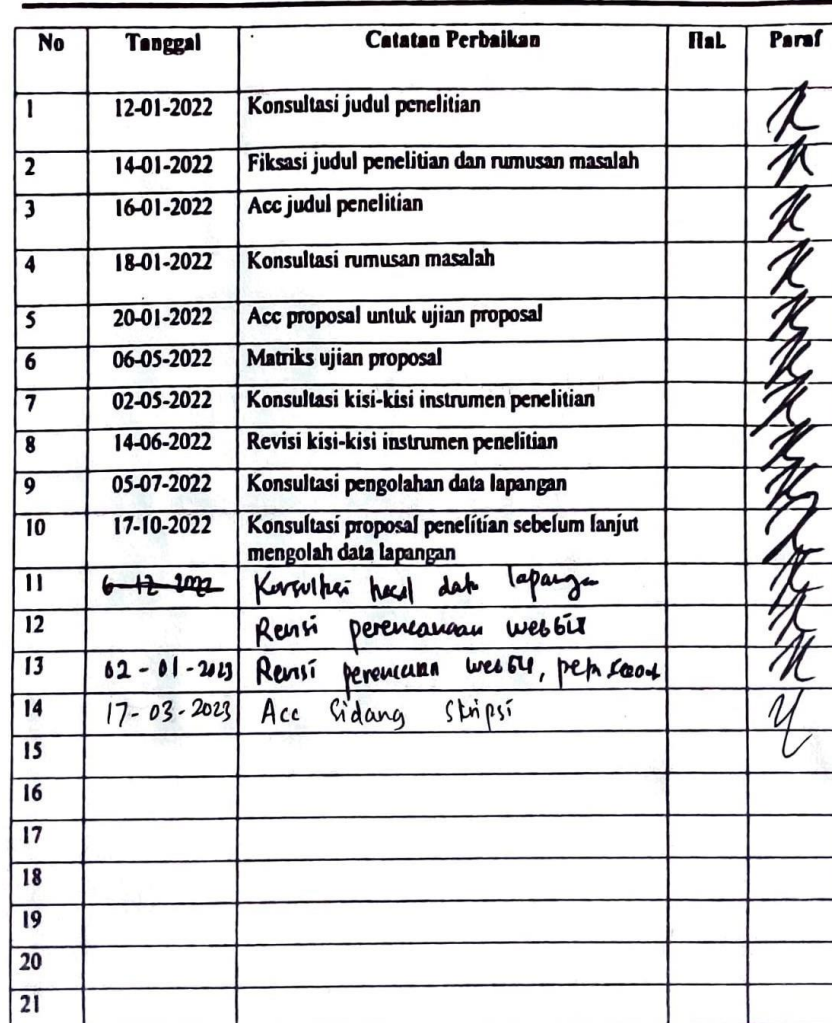 No Tanggal Catatan Perbaikan Hal. Paraf
1 12-01-2022 Konsultasi judul penelitian
2 14-01-2022 Fiksasi judul penelitian dan rumusan masalah
3 16-01-2022 Acc judul penelitian
4 18-01-2022 Konsultasi rumusan masalah
5 20-01-2022 Acc proposal untuk ujian proposal
6 06-05-2022 Matriks ujian proposal
7 02-05-2022 Konsultasi kisi-kisi instrumen penelitian
8 14-06-2022 Revisi kisi-kisi instrumen penelitian
9 05-07-2022 Konsultasi pengolahan data lapangan
10 17-10-2022 Konsultasi proposal penelitian sebelum lanjut
mengolah data lapangan
11 6-12-2022 Konsultasi hasil data lapangan
12 Revisi perencanaan
13 02-01-2023 Revisi perencanaan
14 17-03-2023 Acc Sidang Skripsi
15
16
17
18
19
20
21